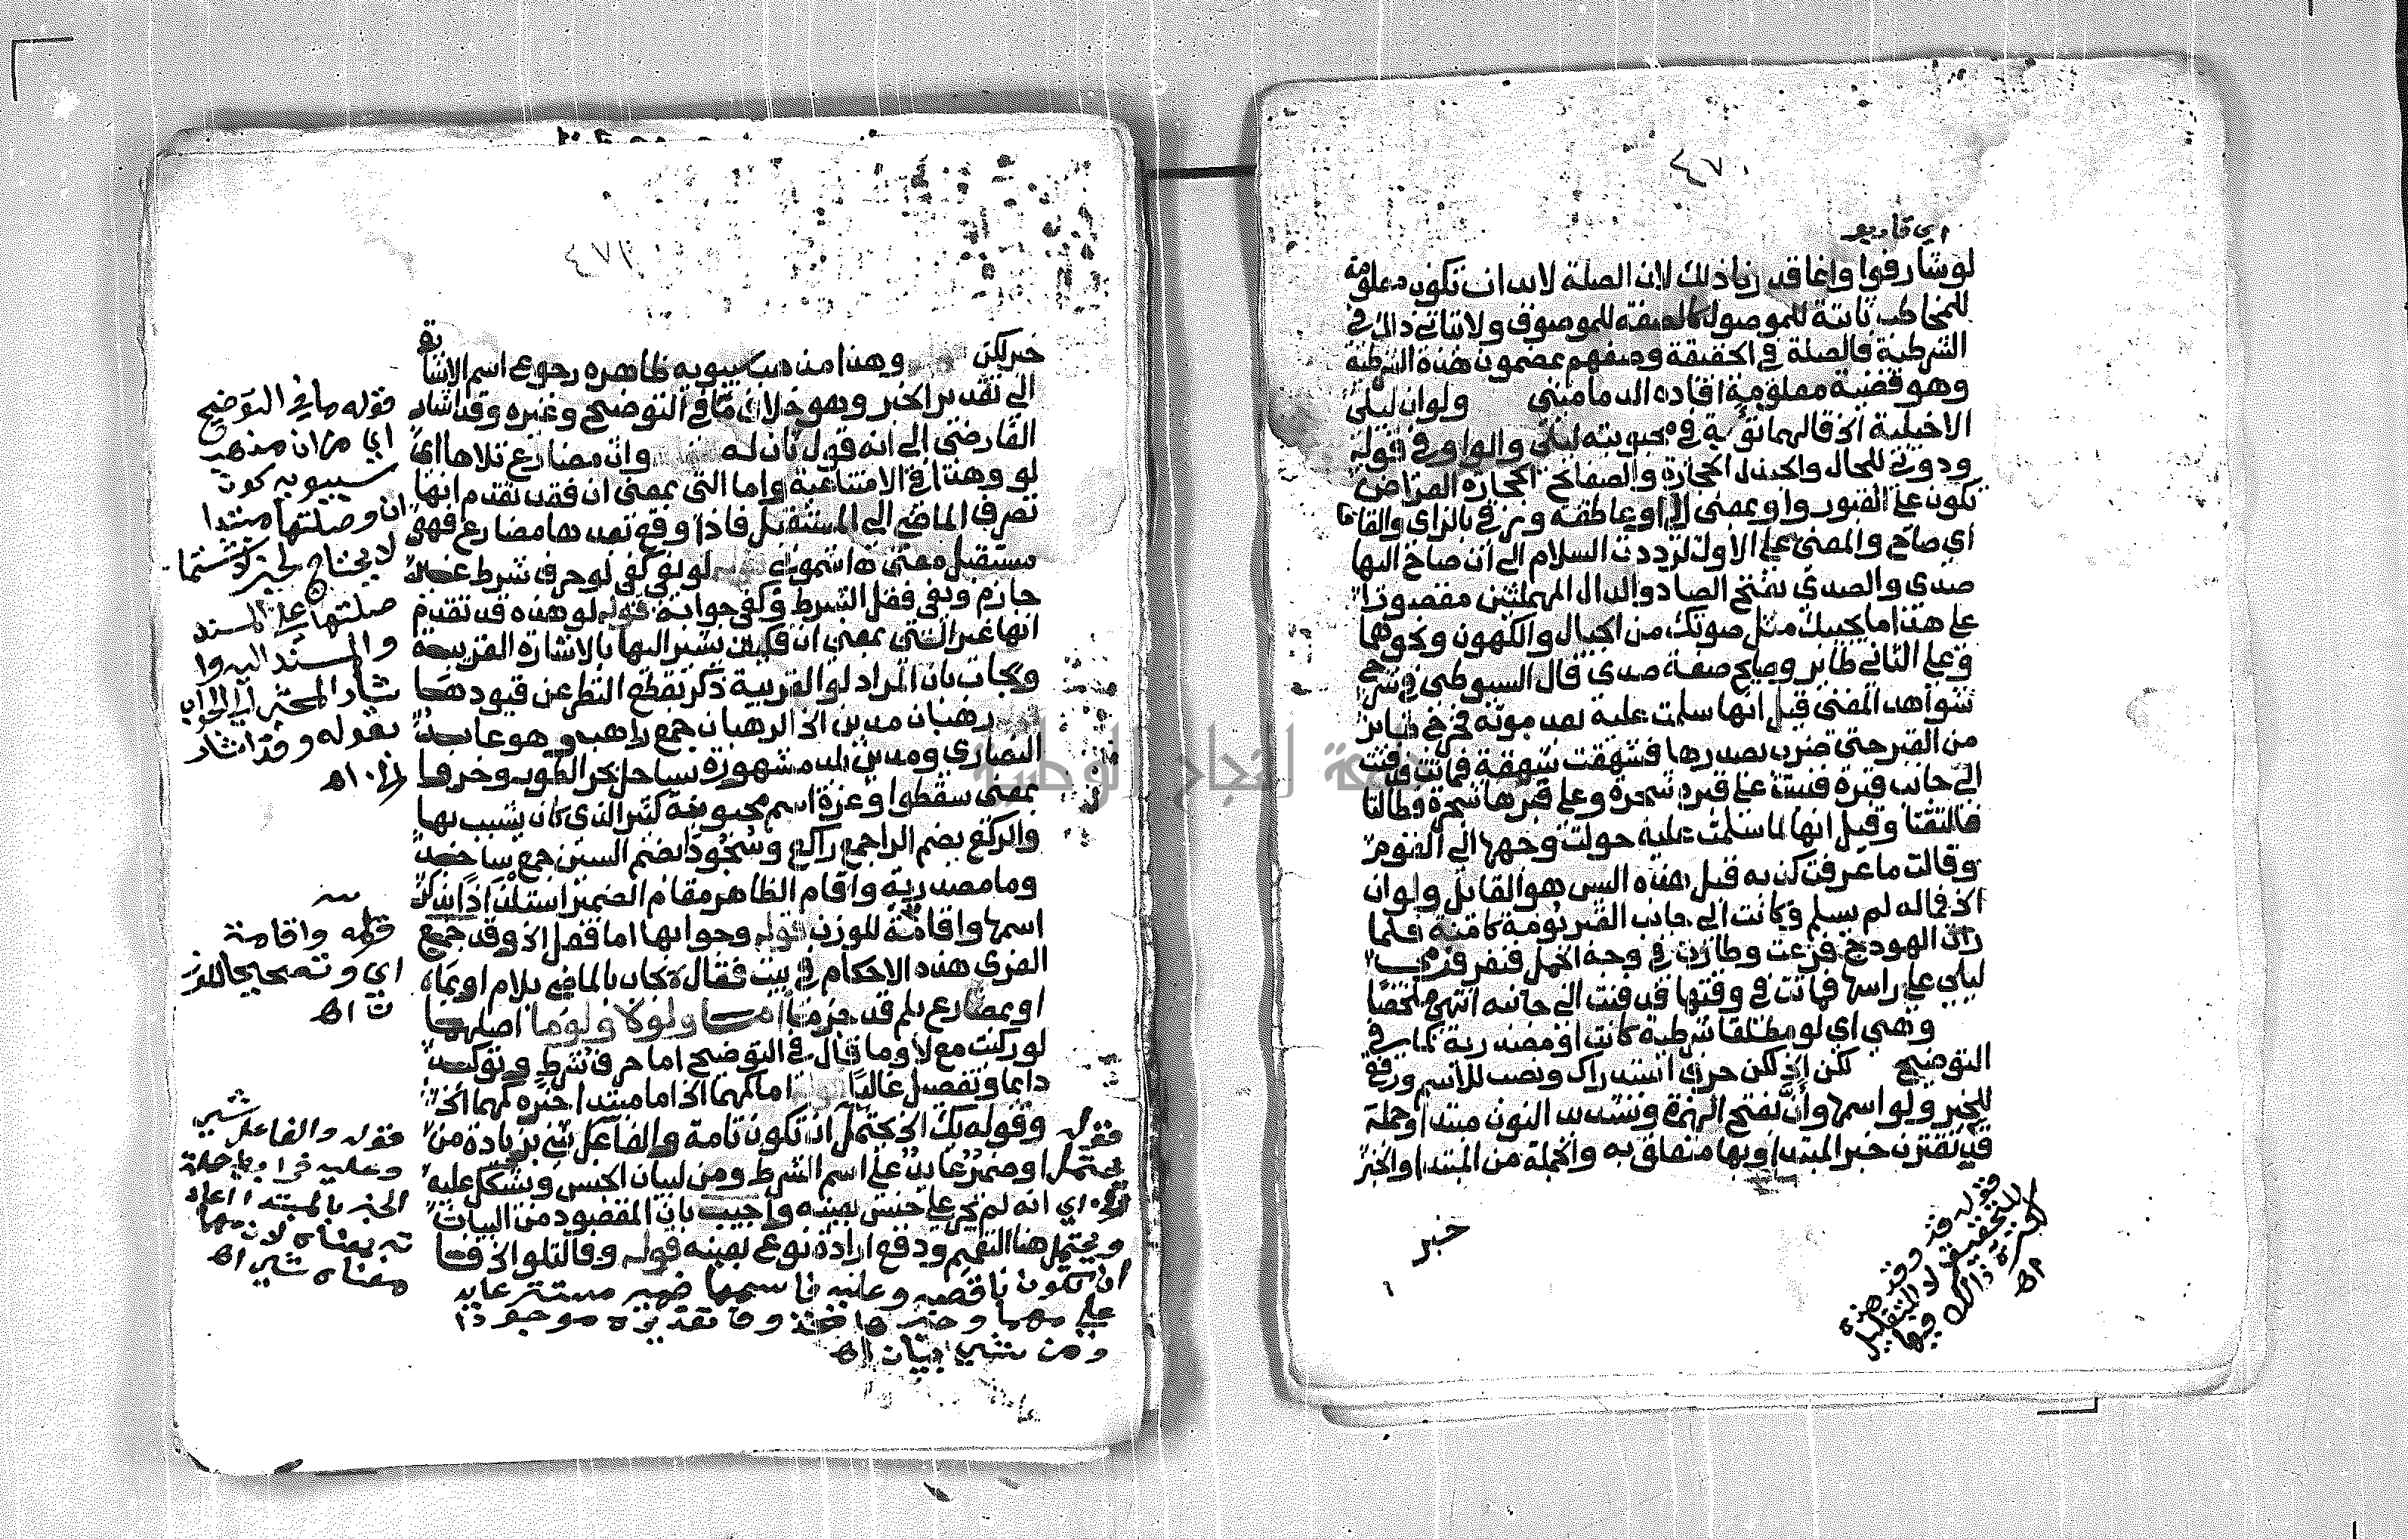 ٤٧٠
لوشارفوا وانما قدرنا ذلك لان الصلة لابد ان تكون معلومة
للمخاطب ثابتة للموصول كالصفة للموصوف ولا يتاتى ذلك في
الشرطية فالصلة في الحقيقة وصفهم بمضمون هذه الشرطية
وهو قضية معلومة افاده الدماميني ولوان ليلى
الاخيلية الخ قالهما توبة في محبوبته ليلى والواو في قوله
ودوني للحال والجندل الحجارة والصفايح الحجارة العراض
تكون على القبور واو بمعنى الى او عاطفة وزقي بالزاي والقاف
اي صاح والمعنى على الاول لرددت السلام الى ان صاح اليها
صدى والصدى بفتح الصاد والدال المهملتين مقصورا
على هذا ما يجيبك مثل صوتك من الجبال والكهوف ونحوها
وعلى الثاني طاير وصايح صفة صدى قال السيوطي في شرح
شواهد المغني قيل انها سلمت عليه بعد موته فخرج طاير
من القبر حتى ضرب بصدرها فشهقت شهقة فماتت فدفنت
الى جانب قبره فنبتت على قبره شجرة وعلى قبرها شجرة وطالتا
فالتفتا وقيل انها لما سلمت عليه حولت وجهها الى القوم
وقالت ما عرفت كذبه قبل هذه اليس هو القايل ولو ان
الخ فماله لم يسلم وكانت الى جانب القبر بومة كامنة فلما
رات الهودج فزعت وطارت في وجه الجمل فنفر فرمى
ليلى على راسها فماتت في وقتها فدفنت الى جانبه انتهى ملخصا
وهي اي لو مطلقا شرطية كانت او مصدرية كما في
التوضيح لكن الخ لكن حرف استدراك ونصب للاسم ورفع
للخبر ولو اسمها وان بفتح الهمزة وتشديد النون مبتدا وجملة
قد تقترن خبر المبتدا وبها متعلق به والجملة من المبتدا والخبر
خبر
قوله قد وقد هنا
للتحقيق لا للتقليل
لكثرة ذلك فيها
اه
٤٧١
خبر لكن وهذا مذهب سيبويه ظاهره رجوع اسم الاشارة
الى تقدير الخبر وهو خلاف ما في التوضيح وغيره وقد اشار
الفارضي الى انه قول ثان له وان مضارع تلاها اي
لو وهذا في الامتناعية واما التي بمعنى ان فقد تقدم انها
تصرف الماضي الى المستقبل فاذا وقع بعدها مضارع فهو
مستقبل معنى اشموني لو يفي كفى لو حرف شرط غير
جازم ويفي فعل الشرط وكفى جوابه قوله لو هذه قد تقدم
انها غير التي بمعنى ان فكيف يشير اليها بالاشارة القريبة
ويجاب بان المراد لو القريبة ذكر بقطع النظر عن قيودها
رهبان مدين الخ الرهبان جمع راهب وهو عابد
النصارى ومدين بلد مشهورة بساحل بحر الطور وخروا
بمعنى سقطوا وعزة اسم محبوبة كثير الذي كان يشبب بها
والركع بضم الراء جمع راكع وسجودا بضم السين جمع ساجد
وما مصدرية واقام الظاهر مقام الضمير استلذاذا بذكر
اسمها واقامة للوزن قوله وجوابها اما فعل الخ وقد جمع
الغزي هذه الاحكام في بيت فقال يجاب بالماضي بلام او بما
او بمضارع بلم قد جزما اما ولولا ولوما اصلهما
لو ركبت مع لا وما قال في التوضيح اما حرف شرط وتوكيد
دايما وتفصيل غالبا اما كمهما الخ اما مبتدا خبره كمهما الخ
وقوله يك الخ يحتمل ان تكون تامة والفاعل شي بزيادة من
او ضمير عايد على اسم الشرط ومن لبيان الجنس ويشكل عليه
انه لم يجر على جنس بعينه واجيب بان المقصود من البيان
هنا التعميم ودفع ارادة نوع بعينه قوله وفا لتلو الخ فا
قوله ما في التوضيح
اي من ان مذهب
سيبويه كون
ان وصلتها مبتدا
لا يحتاج لخبر لاشتما
صلتها على المسند
والمسند اليه وا
شار المحشي الى الجواب
بقوله وقد اشار
الخ اه
قوله واقامة
اي وتصحيحا للوز
ن اه
قوله والفاعل شي
وعليه
الخبر بالمبتدا اعاد
ته بمعناه لان مهما
معناه شي اه
قوله
يحتمل
اي
ويحتمل
ان تكون ناقصة وعليه فاسمها ضمير مستتر عايد
على مهما وخبرها محذوف تقديره موجودا
ومن شي بيان اه